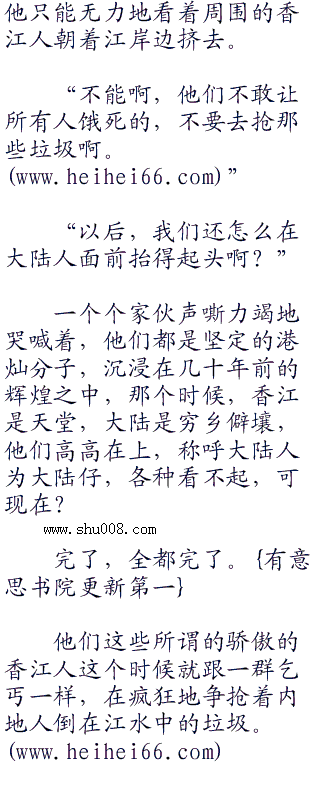 他只能无力地看着周围的香
江人朝着江岸边挤去。
“不能啊，他们不敢让
所有人饿死的，不要去抢那
些垃圾啊。
(www.heihei66.com)”
“以后，我们还怎么在
大陆人面前抬得起头啊？”
一个个家伙声嘶力竭地
哭喊着，他们都是坚定的港
灿分子，沉浸在几十年前的
辉煌之中，那个时候，香江
是天堂，大陆是穷乡僻壤，
他们高高在上，称呼大陆人
为大陆仔，各种看不起，可
现在？
www.shu008.com
完了，全都完了。{有意
思书院更新第一}
他们这些所谓的骄傲的
香江人这个时候就跟一群乞
丐一样，在疯狂地争抢着内
地人倒在江水中的垃圾。
(www.heihei66.com)